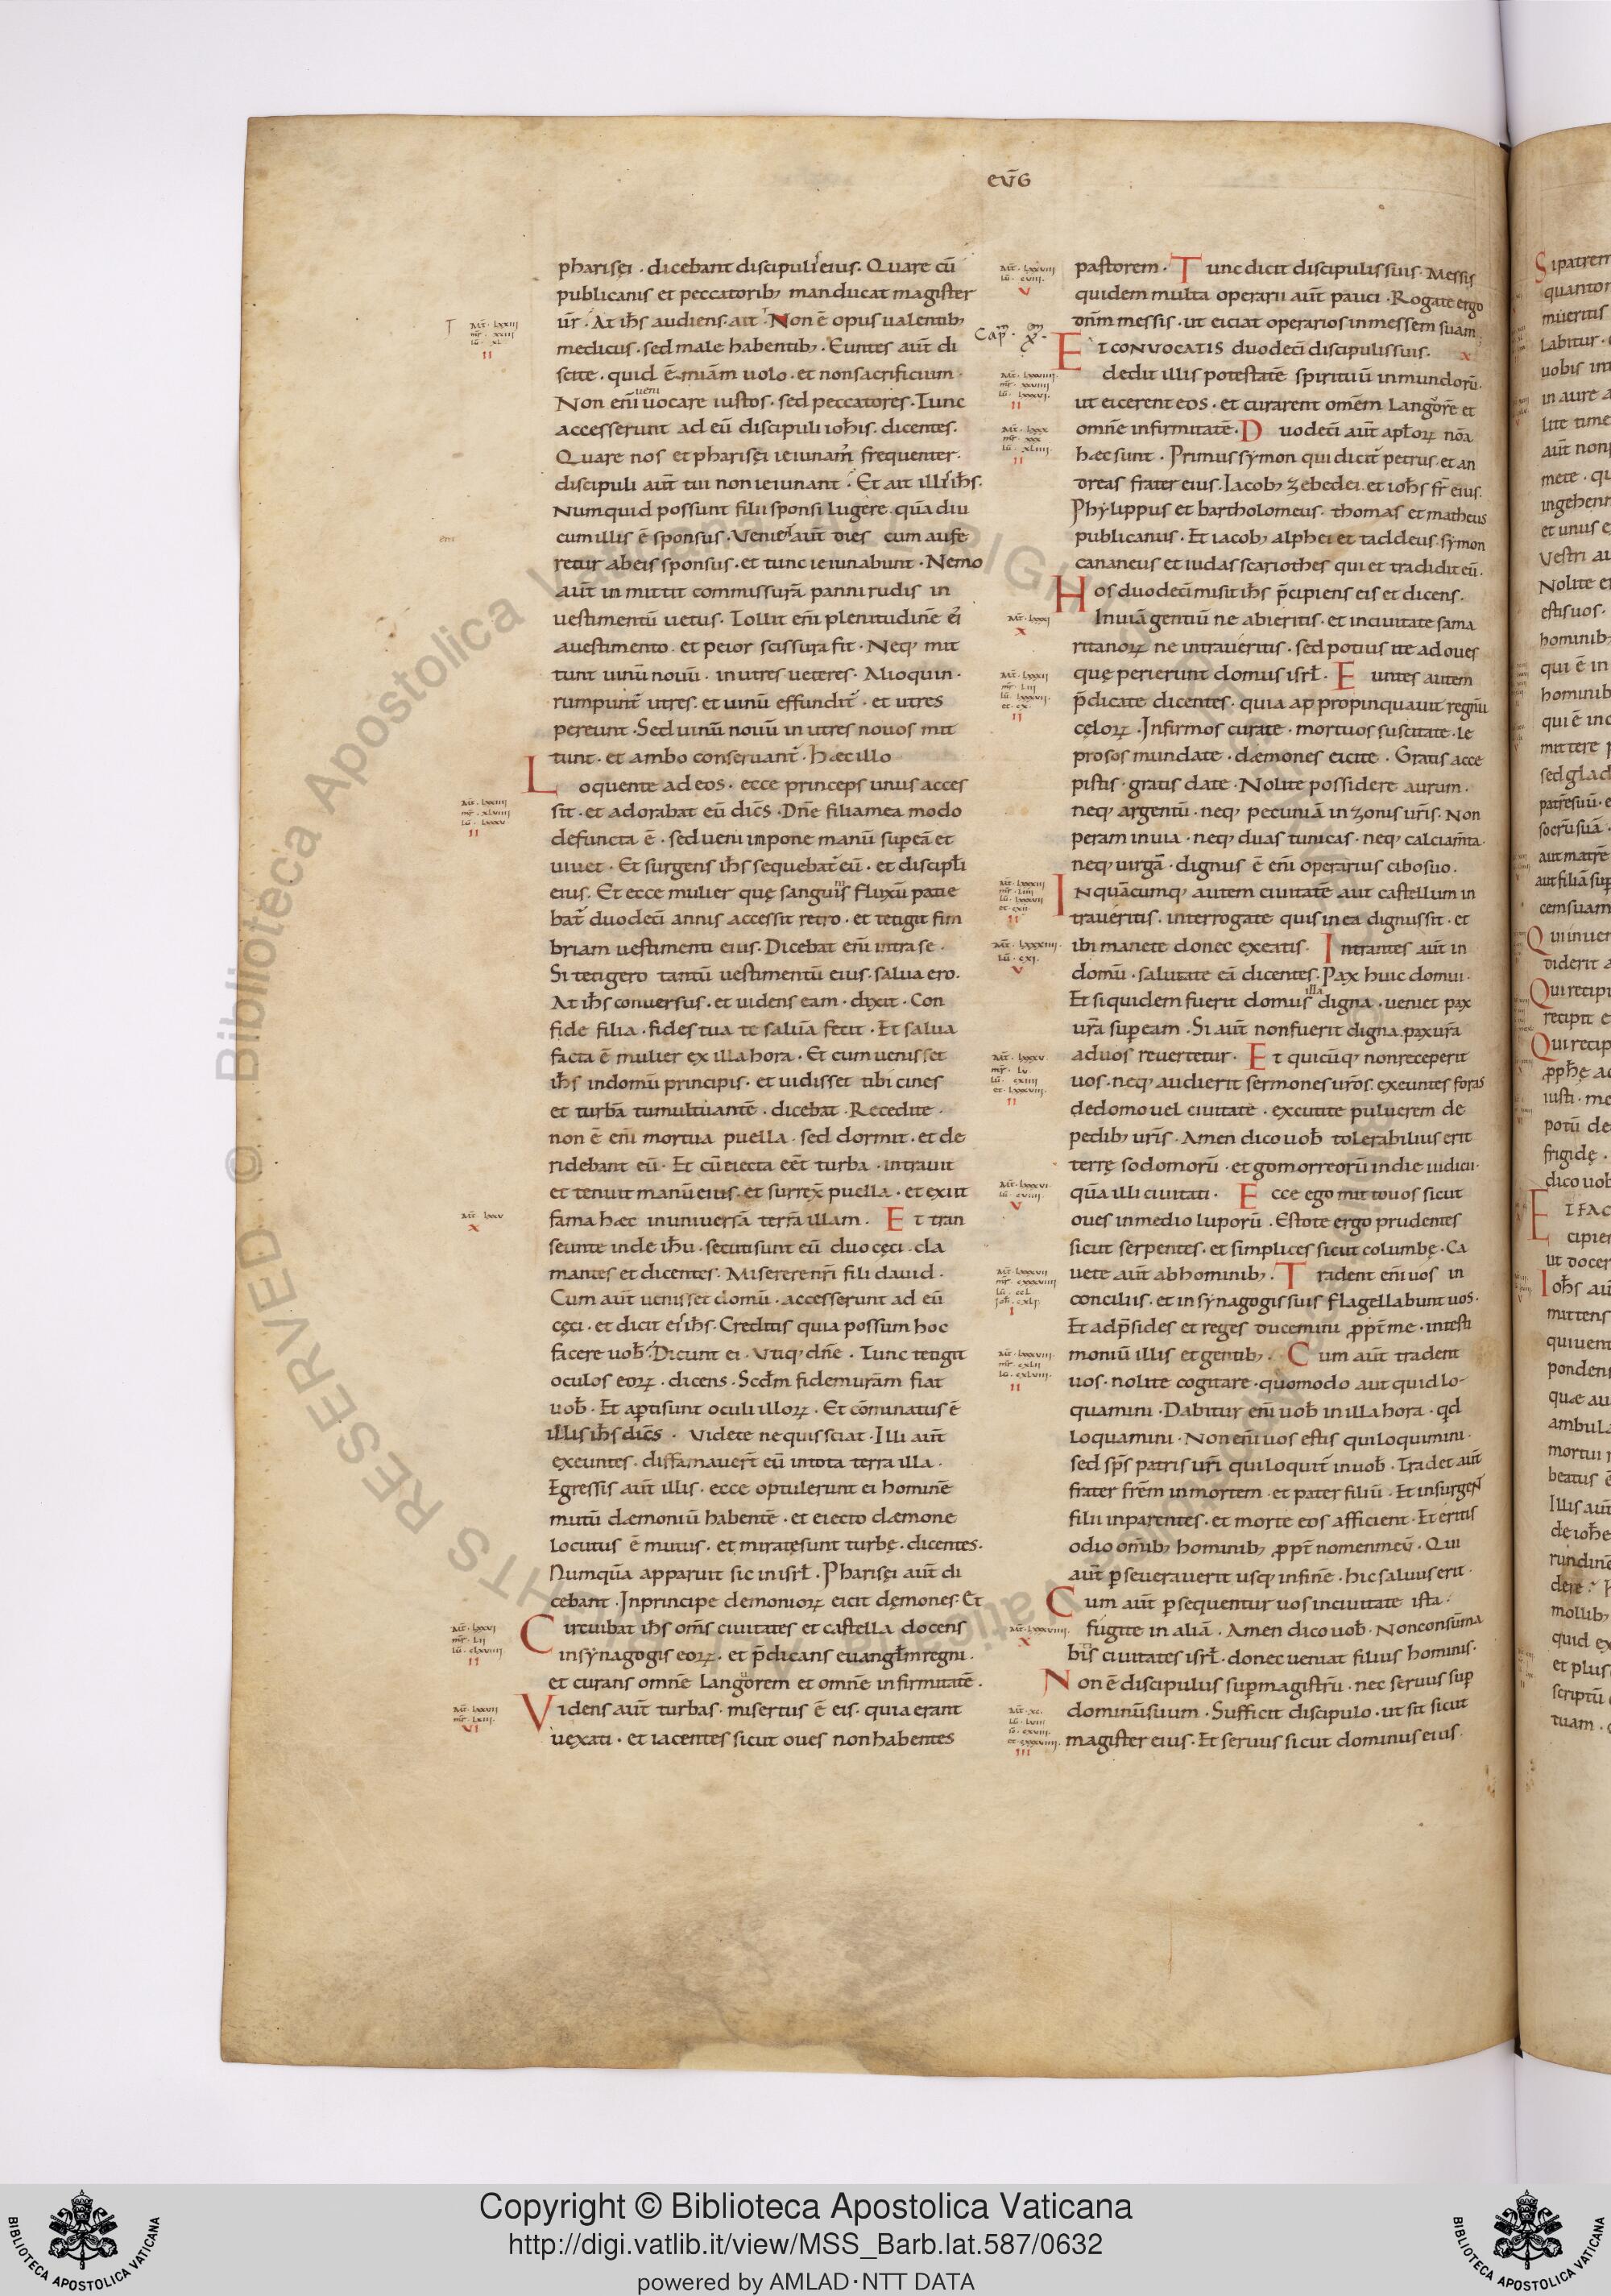 EVG
pharisęi · dicebant discipuli eius · Quare cū
publicanis et peccatorib; manducat magister
ur̄ · At ih̄s audiens · ait · Non ē opus ualentib;
medicus · sed male habentib; · Euntes aut̄ di
scite · quid ē · miām uolo · et non sacrificium ·
ueni
Non eni̅ uocare iustos · sed peccatores · Tunc
accesserunt ad eū discipuli ioh̄is · dicentes ·
Quare nos et pharisęi ieiunam̄ frequenter ·
discipuli aut̄ tui non ieiunant · Et ait illis ih̄s ·
Numquid possunt filii sponsi lugere · quādiu
cum illis ē sponsus · Venien̄t aut̄ dies cum aufe
retur ab eis sponsus · et tunc ieiunabunt · Nemo
aut̄ in mittit commissurā panni rudis in
uestimentū uetus · Tollit eni̅ plenitudinē ei'
a uestimento · et peior scissura fit · Neq; mit
tunt uinū nouū · in utres ueteres · Alioquin ·
rumpunt̄ utres · et uinū effundit̄ · et utres
pereunt · Sed uinū nouū in utres nouos mit
tunt · et ambo conseruant̄ · Hæc illo
Loquente ad eos · ecce princeps unus acces
sit · et adorabat eū dic̄s · Dn̄e filia mea modo
defuncta ē · sed ueni impone manū sup eā et
uiuet · Et surgens ih̄s sequebat̄ eū · et discipl̄i
eius · Et ecce mulier quę sanguinis fluxū patie
bat̄ duodeci̅ annis accessit retro · et tetigit fim
briam uestimenti eius · Dicebat eni̅ intra se ·
Si tetigero tantū uestimentū eius · salua ero ·
At ih̄s conuersus · et uidens eam · dixit · Con
fide filia · fides tua te saluā fecit · Et salua
facta ē mulier ex illa hora · Et cum uenisset
ih̄s in domū principis · et uidisset tibicines
et turbā tumultuantē · dicebat · Recedite ·
non ē eni̅ mortua puella · sed dormit · et de
ridebant eū · Et cū eiecta eēt turba · intrauit
et tenuit manū eius · et surrex̄ puella · et exiit
fama hæc in uniuersā terrā illam · Et tran
seunte inde ih̄u · secuti sunt eū duo cęci · cla
mantes et dicentes · Miserere nr̄i fili dauid ·
Cum aut̄ uenisset domū · accesserunt ad eū
cęci · et dicit eis ih̄s · Creditis quia possum hoc
facere uob̄ · Dicunt ei · Vtiq; dn̄e · Tunc tetigit
oculos eoꝝ · dicens · Scd̄m fidem urām fiat
uob̄ · Et apti sunt oculi illoꝝ · Et cōminatus ē
illis ih̄s dic̄s · Videte ne quis sciat · Illi aut̄
exeuntes · diffamauer̄t eū in tota terra illa ·
Egressis aut̄ illis · ecce optulerunt ei hominē
mutū dæmoniū habentē · et eiecto dæmone
locutus ē mutus · et miratę sunt turbę · dicentes ·
Numquā apparuit sic in isrl̄ · Pharisęi aut̄ di
cebant · In principe demonioꝝ eicit dęmones · Et
Circuibat ih̄s om̄s ciuitates et castella docens
in synagogis eoꝝ · et p̄dicans euangl̄m regni ·
et curans omnē languorem et omnē infirmitatē ·
Videns aut̄ turbas · misertus ē eis · quia erant
uexati · et iacentes sicut oues non habentes
pastorem · Tunc dicit discipulis suis · Messis
quidem multa operarii aut̄ pauci · Rogate ergo
dnm̄ messis · ut eiciat operarios in messem suam ·
Cap̄ · X ·
Et CONVOCATIS duodeci̅ discipulis suis · x
dedit illis potestatē spirituū inmundorū ·
ut eicerent eos · et curarent omēm languorē et
omnē infirmitatē · Duodeci̅ aut̄ apl̄oꝝ nōa
hæc sunt · Primus symon qui dicit̄ petrus · et an
dreas frater eius · Iacob; zebedei · et ioh̄s fr̄ eius ·
Phylippus et bartholomeus · thomas et matheus
publicanus · Et iacob; alphei et taddeus · symon
cananeus et iudas scariothes qui et tradidit eū ·
Hos duodeci̅ misit ih̄s p̄cipiens eis et dicens ·
In uiā gentiū ne abieritis · et in ciuitate sama
ritanoꝝ ne intraueritis · sed potius ite ad oues
quę perierunt domus isrl̄ · Euntes autem
p̄dicate dicentes · quia appropinquauit regnū
cęloꝝ · Infirmos curate · mortuos suscitate · le
prosos mundate · dæmones eicite · Gratis acce
pistis · gratis date · Nolite possidere aurum ·
neq; argentū · neq; pecuniā in zonis ur̄is · Non
peram in uia · neq; duas tunicas · neq; calciam̄ta ·
neq; uirgā · dignus ē eni̅ operarius cibo suo ·
Inquācumq; autem ciuitatē aut castellum in
traueritis · interrogate quis in ea dignus sit · et
ibi manete donec exeatis · Intrantes aut̄ in
domū · salutate eā dicentes · Pax huic domui ·
illa
Et siquidem fuerit domus digna · ueniet pax
ur̄a sup eam · Si aut̄ non fuerit digna · pax ur̄a
ad uos reuertetur · Et quicūq; non receperit
uos · neq; audierit sermones ur̄os · exeuntes foras
de domo uel ciuitate · excutite puluerem de
pedib; ur̄is · Amen dico uob̄ tolerabilius erit
terrę sodomorū · et gomorreorū in die iudicii ·
quā illi ciuitati · Ecce ego mitto uos sicut
oues in medio luporū · Estote ergo prudentes
sicut serpentes · et simplices sicut columbę · Ca
uete aut̄ ab hominib; · Tradent eni̅ uos in
conciliis · et in synagogis suis flagellabunt uos ·
Et ad p̄sides et reges ducemini ꝓpt̄ me · in testi
moniū illis et gentib; · Cum aut̄ tradent
uos · nolite cogitare · quomodo aut quid lo-
quamini · Dabitur eni̅ uob̄ in illa hora · qd
loquamini · Non eni̅ uos estis qui loquimini ·
sed sp̄s patris ur̄i qui loquit̄ in uob̄ · Tradet aut̄
frater fr̄em in mortem · et pater filiū · Et insurgent
filii in parentes · et morte eos afficient · Et eritis
odio omīb; hominib; ꝓpt̄ nomen meū · Qui
aut̄ pseuerauerit usq; in finē · hic saluus erit ·
Cum aut̄ psequentur uos in ciuitate ista ·
fugite in aliā · Amen dico uob̄ · Non consūma
bitis ciuitates isrl̄ · donec ueniat filius hominis ·
Non ē discipulus sup magistrū · nec seruus sup
dominū suum · Sufficit discipulo · ut sit sicut
magister eius · Et seruus sicut dominus eius ·
© Biblioteca Apostolica Vaticana ALL RIGHTS RESERVED
Copyright © Biblioteca Apostolica Vaticana
http://digi.vatlib.it/view/MSS_Barb.lat.587/0632
powered by AMLAD·NTT DATA
BIBLIOTECA APOSTOLICA VATICANA
BIBLIOTECA APOSTOLICA VATICANA